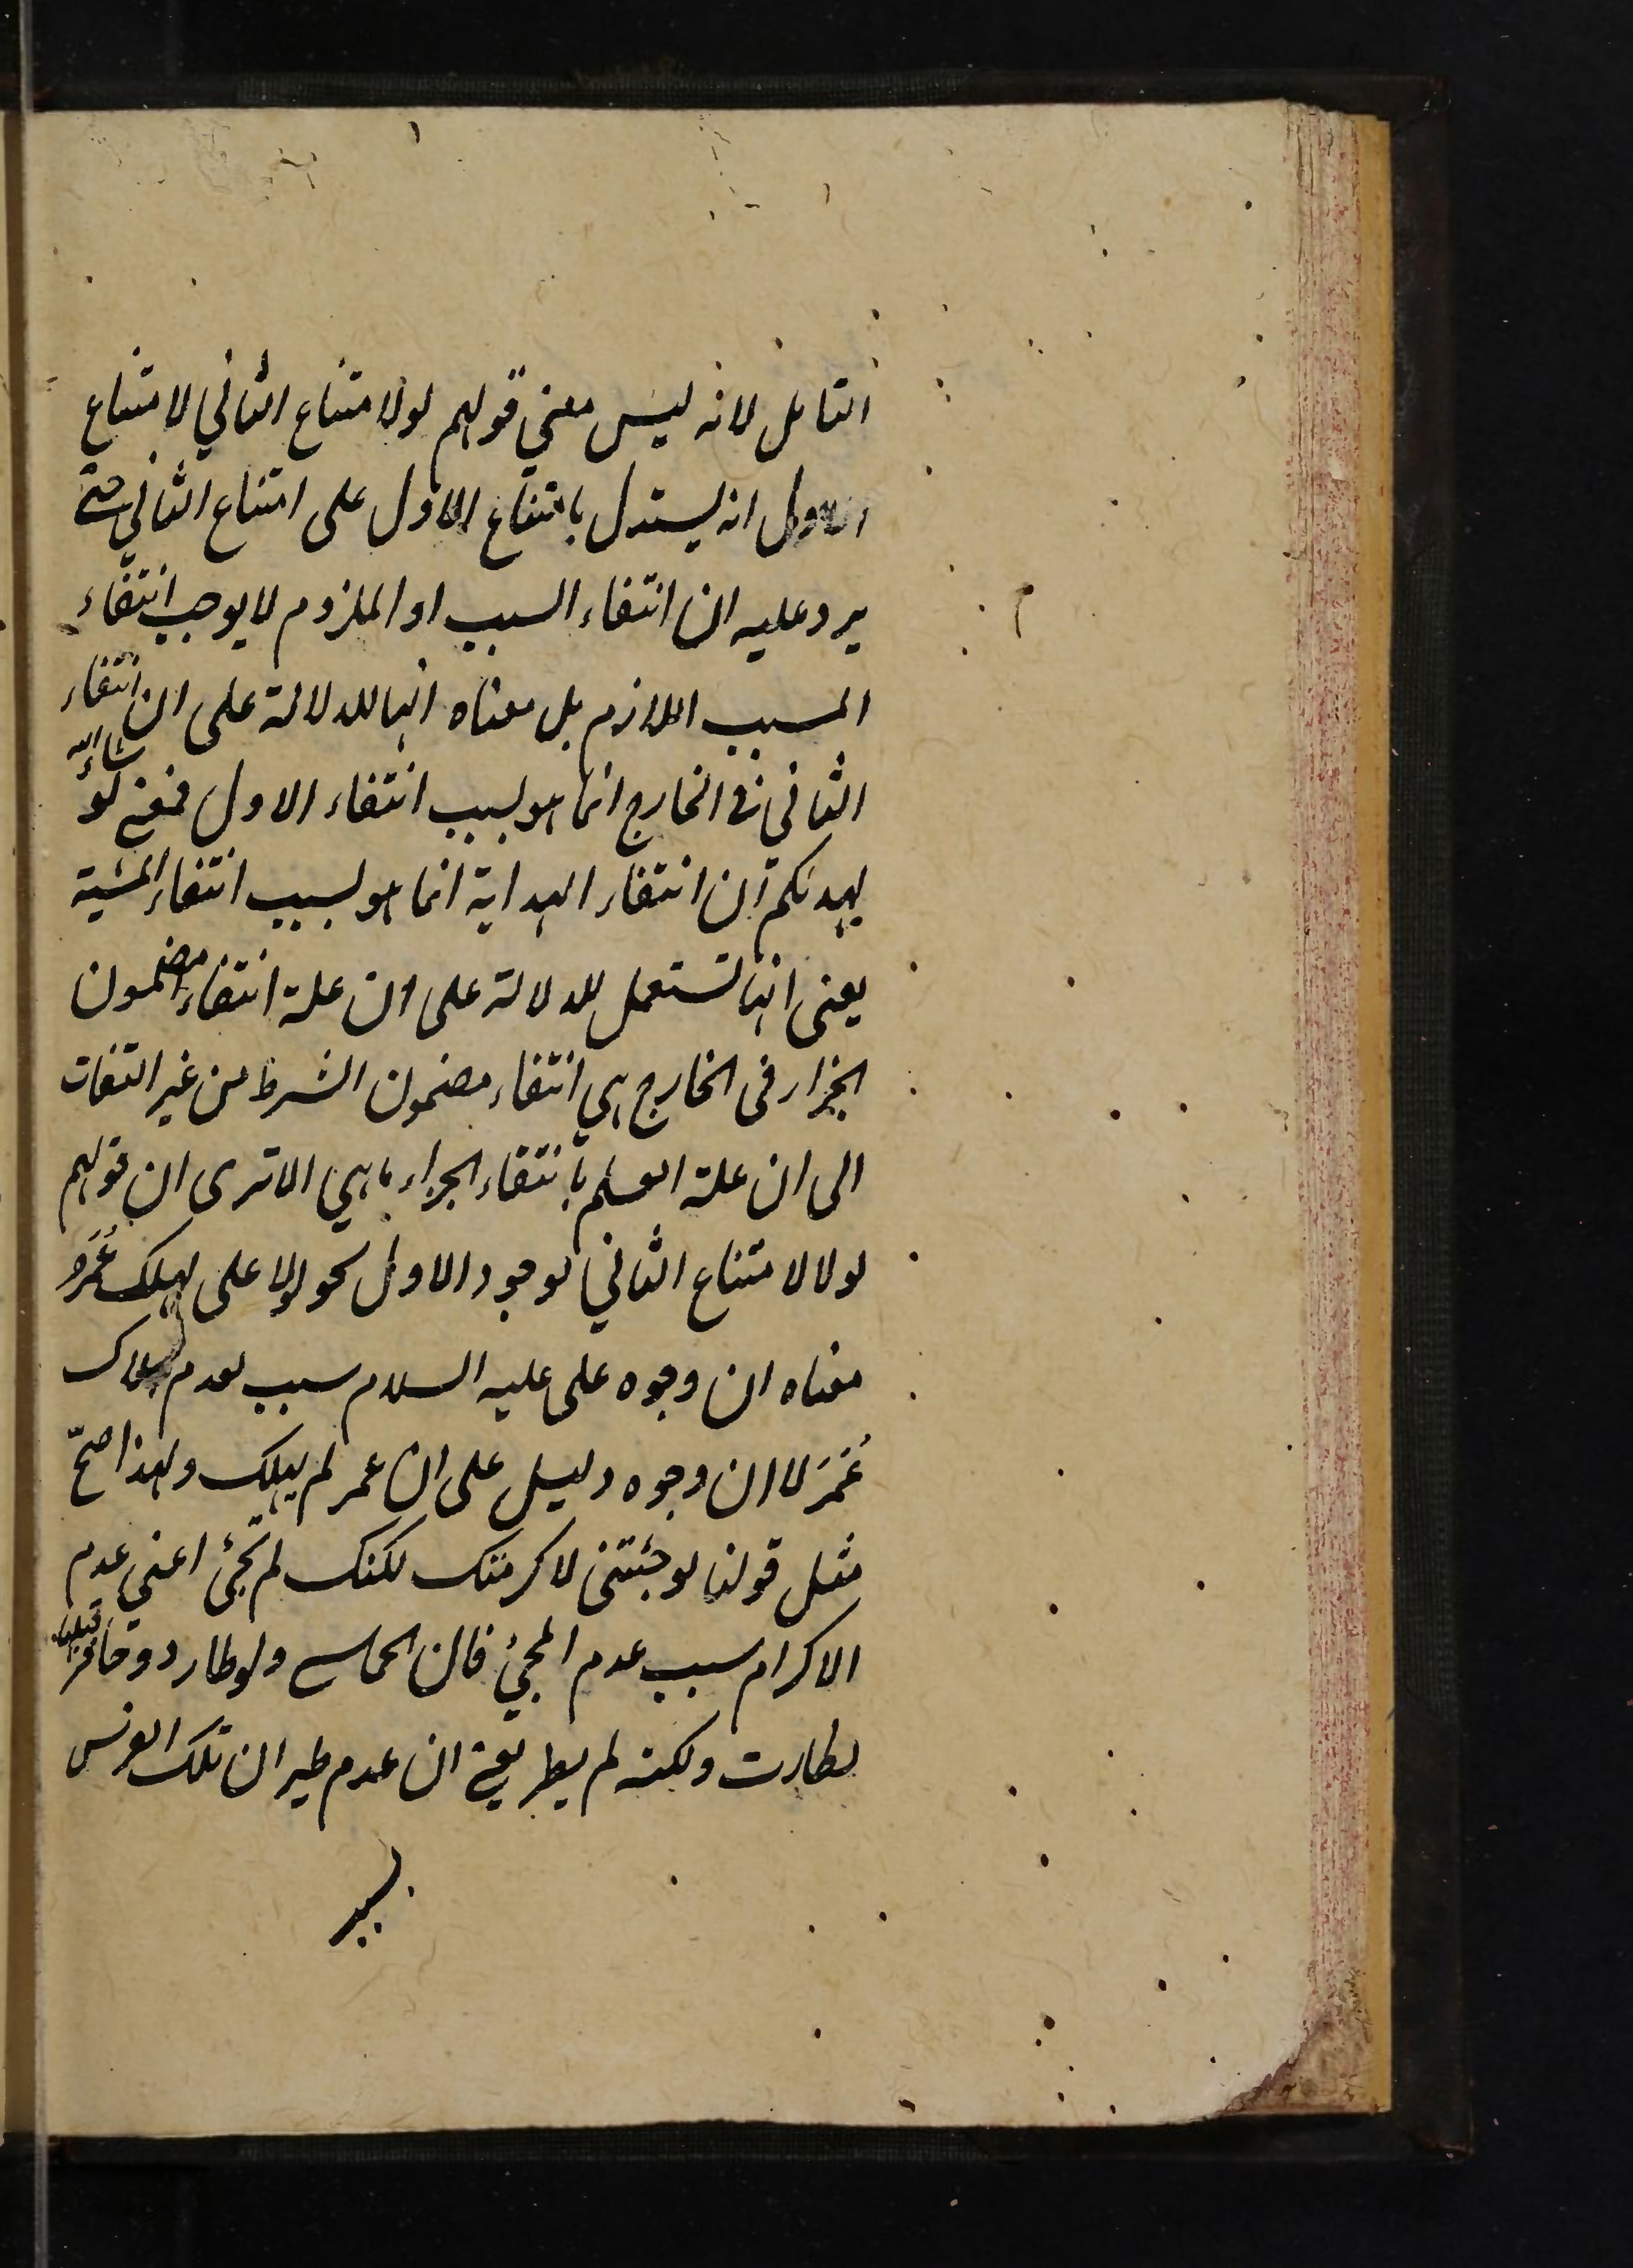 التامل لانه ليس معنى قولهم لو لامتناع الثاني لامتناع
الاول انه يستدل بامتناع الاول على امتناع الثاني حتى
يرد عليه ان انتفاء السبب او الملزوم لا يوجب انتفاء
المسبب اللازم بل معناه انها للدلالة على ان انتفاء
الثاني في الخارج انما هو بسبب انتفاء الاول فمعنى لو شاء الله
لهديكم ان انتفاء الهداية انما هو بسبب انتفاء المشية
يعنى انها تستعمل للدلالة على ان علة انتفاء مضمون
الجزاء فى الخارج هي انتفاء مضمون الشرط من غير التفات
الى ان علة العلم بانتفاء الجزاء ما هي الا ترى ان قولهم
لولا لامتناع الثاني لوجود الاول نحو لولا على لهلك عُمَر
معناه ان وجوه على عليه السلام سبب لعدم هلاك
عُمَرَ لا ان وجوه دليل على ان عمر لم يهلك ولهذا صحّ
مثل قولنا لو جئتنى لاكرمتك لكنك لم تجئ اعنى عدم
الاكرام سبب عدم المجئ قال الحماسى ولو طار ذو حافر قبلها
لطارت ولكنه لم يطر يعنى ان عدم طيران تلك الفرس